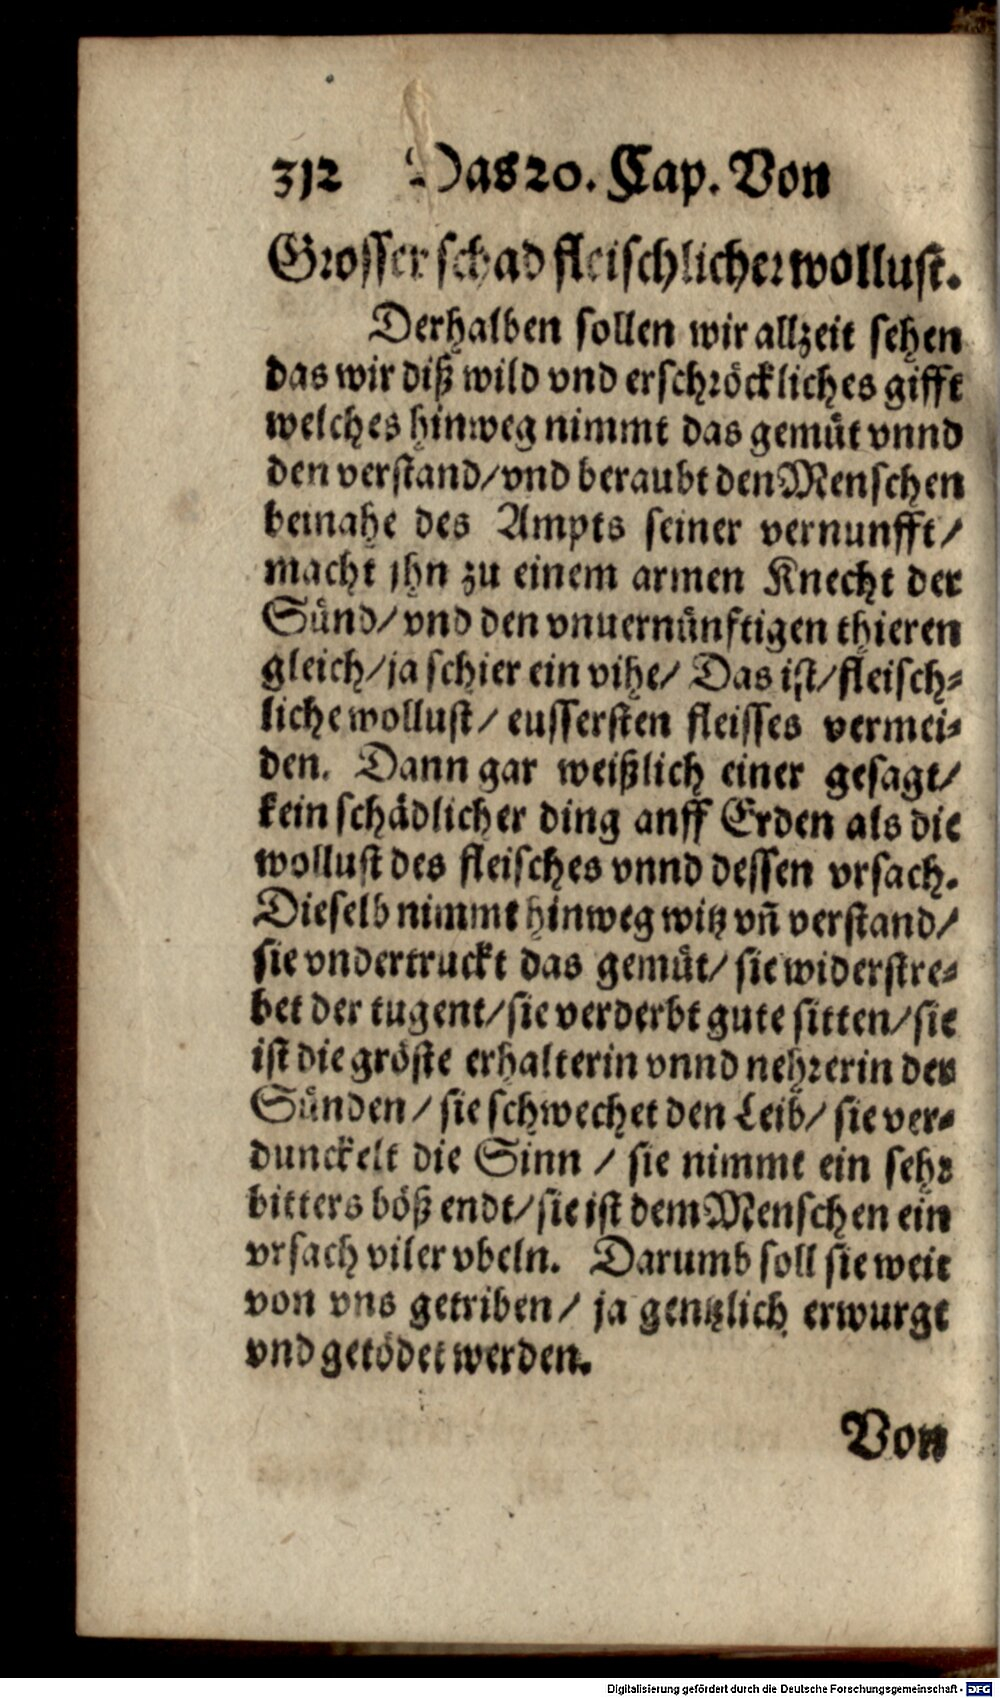 312 Das 20. Cap. Von
Grosser schad fleischlicher wollust.
Derhalben sollen wir allzeit sehen
das wir diß wild vnd erschröckliches gifft
welches hinweg nimmt das gemüt vnnd
den verstand/ vnd beraubt den Menschen
beinahe des Ampts seiner vernunfft/
macht jhn zu einem armen Knecht der
Sünd/ vnd den vnuernünftigen thieren
gleich/ ja schier ein vihe/ Das ist/ fleisch-
liche wollust/ eussersten fleisses vermei-
den. Dann gar weißlich einer gesagt/
kein schädlicher ding anff Erden als die
wollust des fleisches vnnd dessen vrsach.
Dieselb nimmt hinweg witz vñ verstand/
sie vndertruckt das gemüt/ sie widerstre-
bet der tugent/ sie verderbt gute sitten/ sie
ist die gröste erhalterin vnnd nehrerin der
Sünden/ sie schwechet den Leib/ sie ver-
dunckelt die Sinn / sie nimmt ein sehr
bitters böß endt/ sie ist dem Menschen ein
vrsach viler vbeln. Darumb soll sie weit
von vns getriben/ ja gentzlich erwurgt
vnd getödet werden.
Von
Digitalisierung gefördert durch die Deutsche Forschungsgemeinschaft - DFG